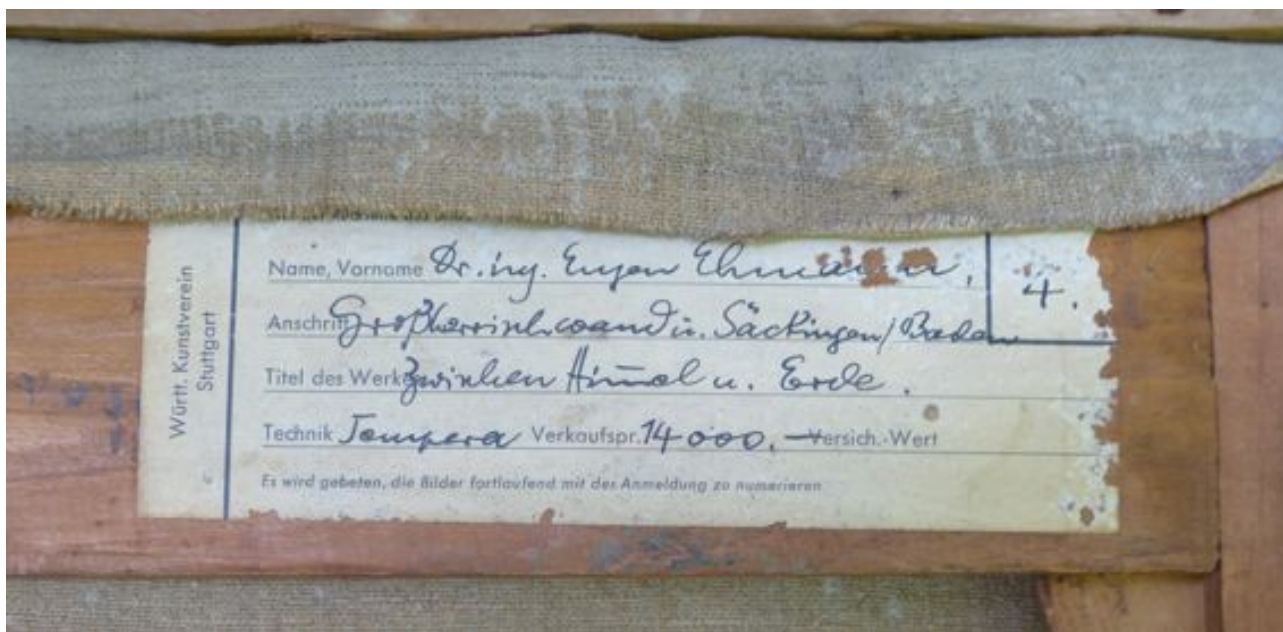 Württ. Kunstverein
Stuttgart
Name, Vorname Dr. ing. Eugen Ehmann,
4.
Anschrift Großherrischwand ü. Säckingen/Baden
Titel des Werk Zwischen Him̄el u. Erde.
Technik Tempera Verkaufspr. 14 000.— Versich.-Wert
Es wird gebeten, die Bilder fortlaufend mit der Anmeldung zu numerieren